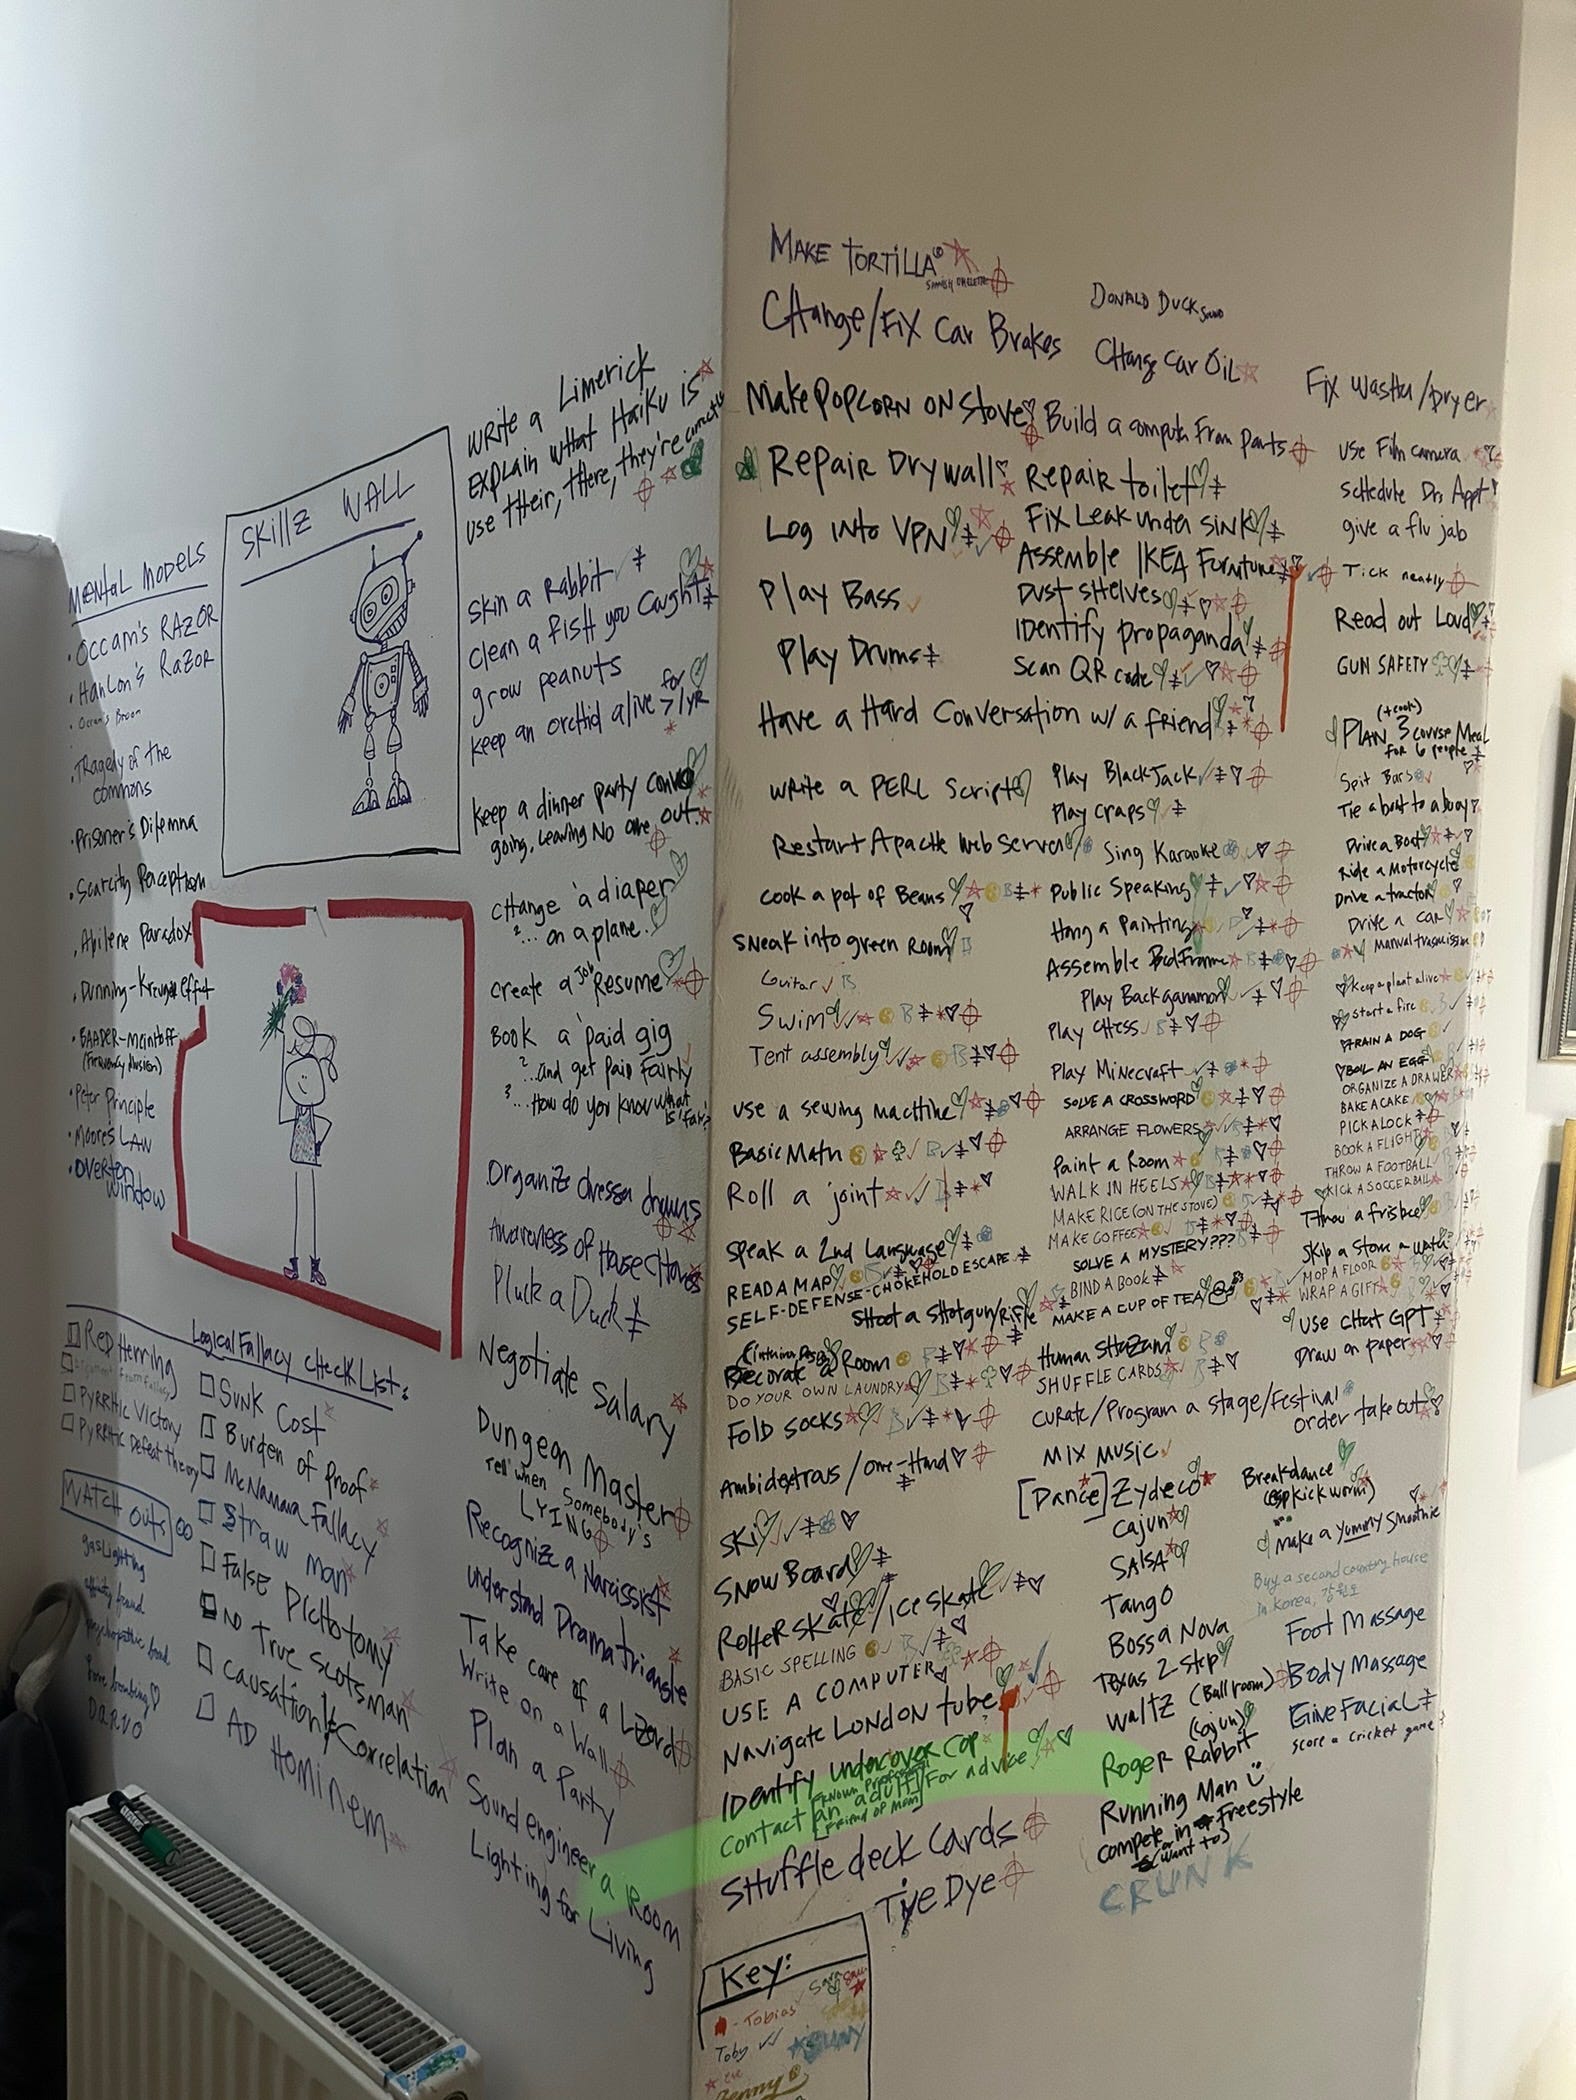 MENTAL MODELS
• OCCAM'S RAZOR
• HANLON'S RAZOR
• Tragedy of the
commons
• Prisoner's Dilemma
• Scarcity Perception
• Abilene Paradox
• Dunning-Kreuger Effect
• BAADER-Meinhoff
• Peter Principle
• Moore's LAW
• OVERTON
Window
SKillz WALL
Write a Limerick
EXPLAIN WHAT HAIKU is
use their, there, they're correctly
Skin a Rabbit
Clean a fish you caught
grow peanuts
keep an orchid alive for >1yr
keep a dinner party convo
going, leaving no one out.
Change a diaper
2... on a plane.
Create a Job Resume
Book a paid gig
2...and get paid fairly
3...How do you know what
is 'fair'?
Organize dresser drawers
Awareness of House Chores
Pluck a Duck
Negotiate Salary
Dungeon Master
Tell when
Somebody's
LYING
Recognize a Narcissist
understand Drama triangle
Take care of a Lizard
Write on a Wall
Plan a Party
Sound engineer a Room
Lighting for Living
Logical Fallacy Check List:
Red Herring
PYRRHIC VICTORY
PYRRHIC Defeat theory
Sunk Cost
Burden of Proof
McNamara Fallacy
Straw man
False Dichotomy
No True Scotsman
Causation/Correlation
AD Hominem
WATCH Outs
gaslighting
affinity fraud
love bombing
DARVO
MAKE TORTILLA
SPANISH OMELETTE
Change/Fix Car Brakes
Make POPCORN ON Stove
Repair Drywall
Log into VPN
Play Bass
Play Drums
Have a Hard Conversation w/ a friend
Write a PERL Script
Restart Apache Web Server
Cook a pot of Beans
Sneak into green Room
Guitar
Swim
Tent assembly
use a sewing machine
Basic Math
Roll a joint
Speak a 2nd Language
READ A MAP
SELF-DEFENSE-CHOKEHOLD ESCAPE
Shoot a Shotgun/Rifle
Decorate a Room
DO YOUR OWN LAUNDRY
Fold socks
Ambidextrous/one-Hand
SKi
Snow Board
Roller skate/Ice skate
BASIC SPELLING
USE A COMPUTER
Navigate London tube
Identify undercover Cop
Contact an adult For advice
Friend of Mom
Shuffle deck Cards
Tye Dye
DONALD DUCK SOUND
Change Car Oil
Build a computer From Parts
Repair toilet
Fix Leak under sink
Assemble IKEA Furniture
Dust shelves
Identify propaganda
Scan QR code
Play BlackJack
Play craps
Sing Karaoke
Public Speaking
Hang a Painting
Assemble Bed Frame
Play Backgammon
Play Chess
Play Minecraft
SOLVE A CROSSWORD
ARRANGE FLOWERS
Paint a Room
WALK IN HEELS
MAKE RICE (ON THE STOVE)
MAKE COFFEE
SOLVE A MYSTERY???
BIND A BOOK
MAKE A CUP OF TEA
Human SHaZam
SHUFFLE CARDS
Curate/Program a Stage/Festival
MIX MUSIC
[Dance] Zydeco
Cajun
SALSA
Tango
Bossa Nova
Texas 2 Step
Waltz (Ballroom)
(Cajun)
Roger Rabbit
Running Man
compete in Freestyle
(want to)
CRUNK
Fix Washer/Dryer
Use Film camera
Schedule Drs Appt
give a flu jab
Tick neatly
Read out Loud
GUN SAFETY
(+cook)
PLAN 3 course Meal
for 6 people
Spit Bars
Tie a boat to a buoy
Drive a Boat
Ride a Motorcycle
Drive a tractor
Drive a car
Manual transmission
Keep a plant alive
Start a fire
TRAIN A DOG
BOIL AN EGG
ORGANIZE A DRAWER
BAKE A CAKE
PICK A LOCK
BOOK A FLIGHT
THROW A FOOTBALL
KICK A SOCCERBALL
Throw a frisbee
Skip a Stone on Water
MOP A FLOOR
WRAP A GIFT
Use Chat GPT
Draw on paper
order take out
Breakdance
(esp kick worm)
Make a yummy Smoothie
Buy a second country house
in Korea, 강원도
Foot Massage
Body Massage
Give Facial
Score a cricket game
Key:
Tobias
Sara
Toby
Jenny